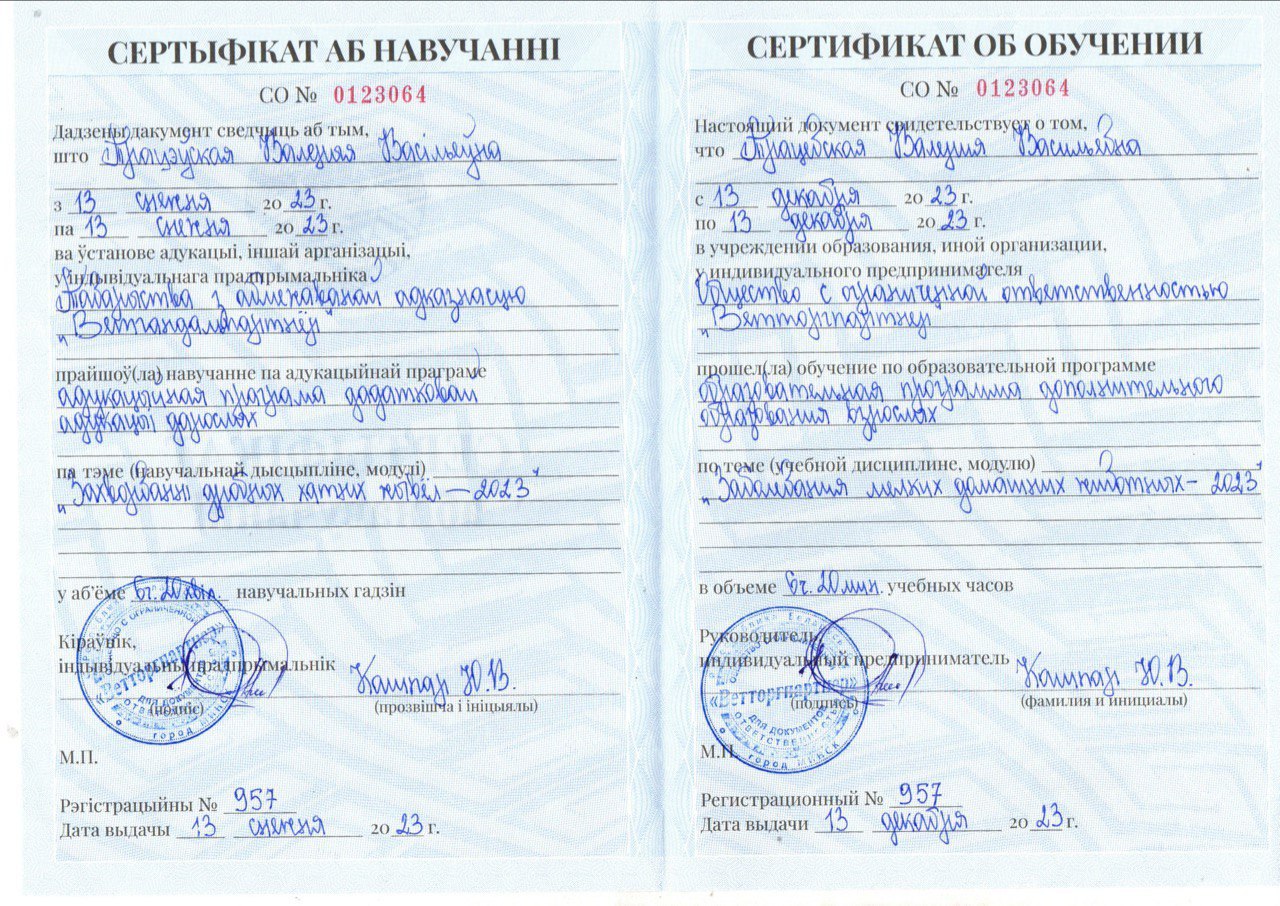 СЕРТЫФІКАТ АБ НАВУЧАННІ
СО № 0123064
Дадзены дакумент сведчыць аб тым,
што Працэўская Валерыя Васільеўна
з 13 снежня 2023 г.
па 13 снежня 2023 г.
ва ўстанове адукацыі, іншай арганізацыі,
у індывідуальнага прадпрымальніка
Таварыства з абмежаванай адказнасцю
"Ветгандальпартнёр"
прайшоў(ла) навучанне па адукацыйнай праграме
адукацыйная праграма дадатковай
адукацыі дарослых
па тэме (навучальнай дысцыпліне, модулі)
"Захворванні дробных хатніх жывёл — 2023"
у аб'ёме 6г. 20 хвіл. навучальных гадзін
Кіраўнік,
індывідуальны прадпрымальнік Кашпар Ю.В.
(подпіс) (прозвішча і ініцыялы)
«Ветторгпартнер»
ДЛЯ ДОКУМЕНТОВ
город МИНСК
М.П.
Рэгістрацыйны № 957
Дата выдачы 13 снежня 2023 г.
СЕРТИФИКАТ ОБ ОБУЧЕНИИ
СО № 0123064
Настоящий документ свидетельствует о том,
что Працевская Валерия Васильевна
с 13 декабря 2023 г.
по 13 декабря 2023 г.
в учреждении образования, иной организации,
у индивидуального предпринимателя
Общество с ограниченной ответственностью
"Ветторгпартнер"
прошел(ла) обучение по образовательной программе
образовательная программа дополнительного
образования взрослых
по теме (учебной дисциплине, модулю)
"Заболевания мелких домашних животных – 2023"
в объеме 6ч. 20 мин. учебных часов
Руководитель,
индивидуальный предприниматель Кашпар Ю.В.
(подпись) (фамилия и инициалы)
«Ветторгпартнер»
ДЛЯ ДОКУМЕНТОВ
город МИНСК
М.П.
Регистрационный № 957
Дата выдачи 13 декабря 2023 г.